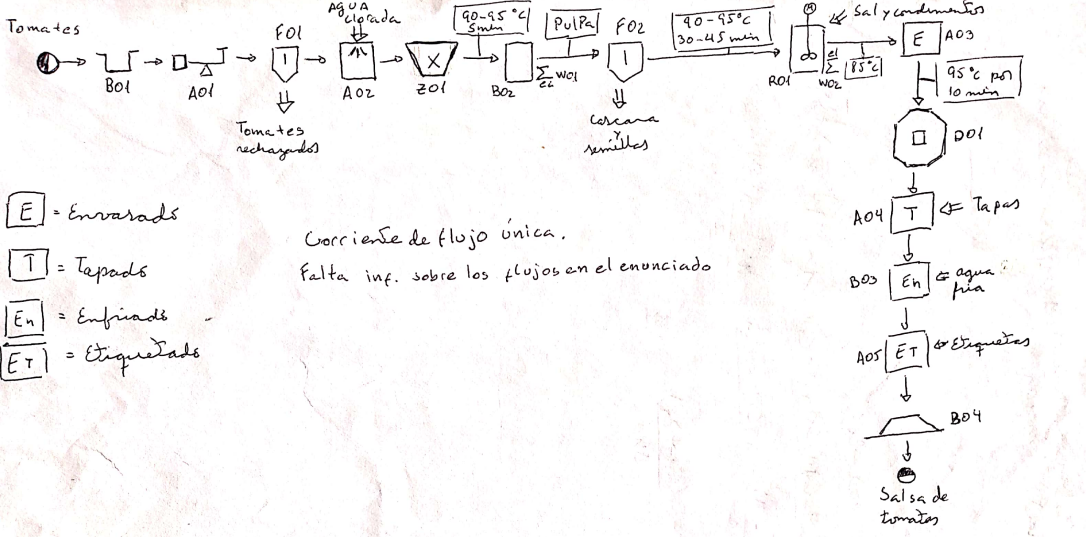 Tomates
B01
A01
F01
Tomates
rechazados
AgUA
clorada
A02
Z01
90-95°C
5min
B02
Σ W01
PulPa
F02
Cascara
y
semillas
90-95°C
30-45 min
M
R01
Sal y condimentos
Σ W02
85°C
E
A03
95°C por
10 min
D01
A04
T
Tapas
B03
En
agua
fria
A05
ET
Etiquetas
B04
Salsa de
tomates
E = Envasado
T = Tapado
En = Enfriado
ET = Etiquetado
Corriente de flujo única.
Falta inf. sobre los flujos en el enunciado